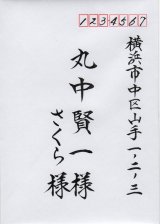 1234567
横浜市中区山手一,二,三
丸中賢一様
さくら様